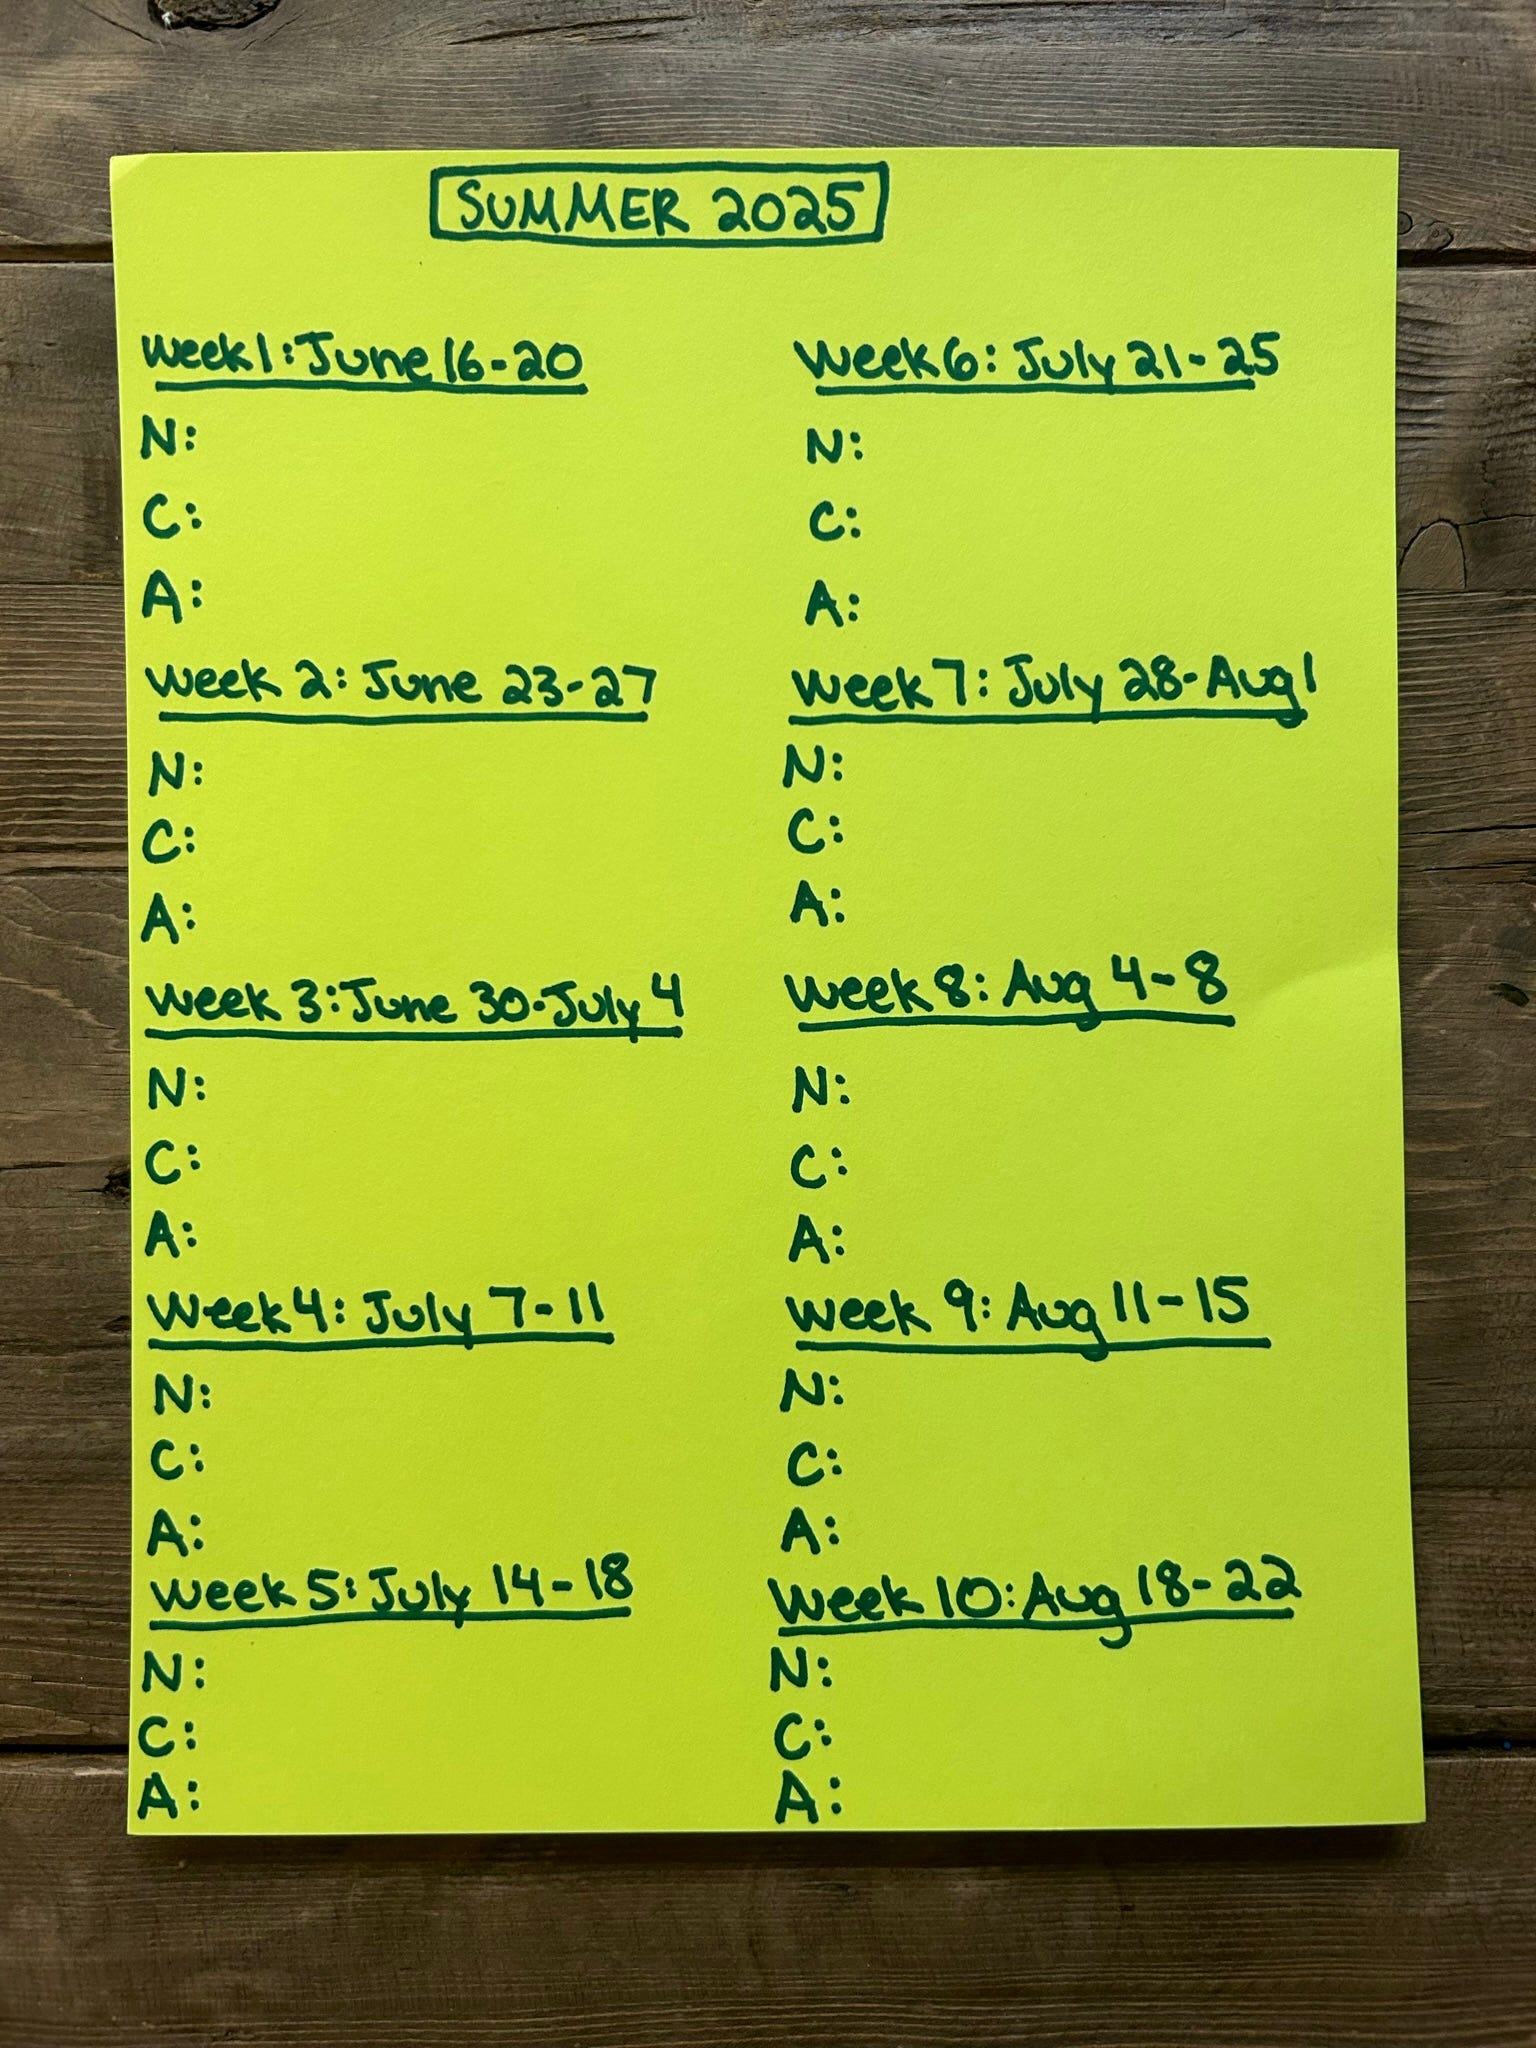 SUMMER 2025
Week 1: June 16-20
N:
C:
A:
Week 2: June 23-27
N:
C:
A:
Week 3: June 30-July 4
N:
C:
A:
Week 4: July 7-11
N:
C:
A:
Week 5: July 14-18
N:
C:
A:
Week 6: July 21-25
N:
C:
A:
Week 7: July 28-Aug 1
N:
C:
A:
Week 8: Aug 4-8
N:
C:
A:
Week 9: Aug 11-15
N:
C:
A:
Week 10: Aug 18-22
N:
C:
A: